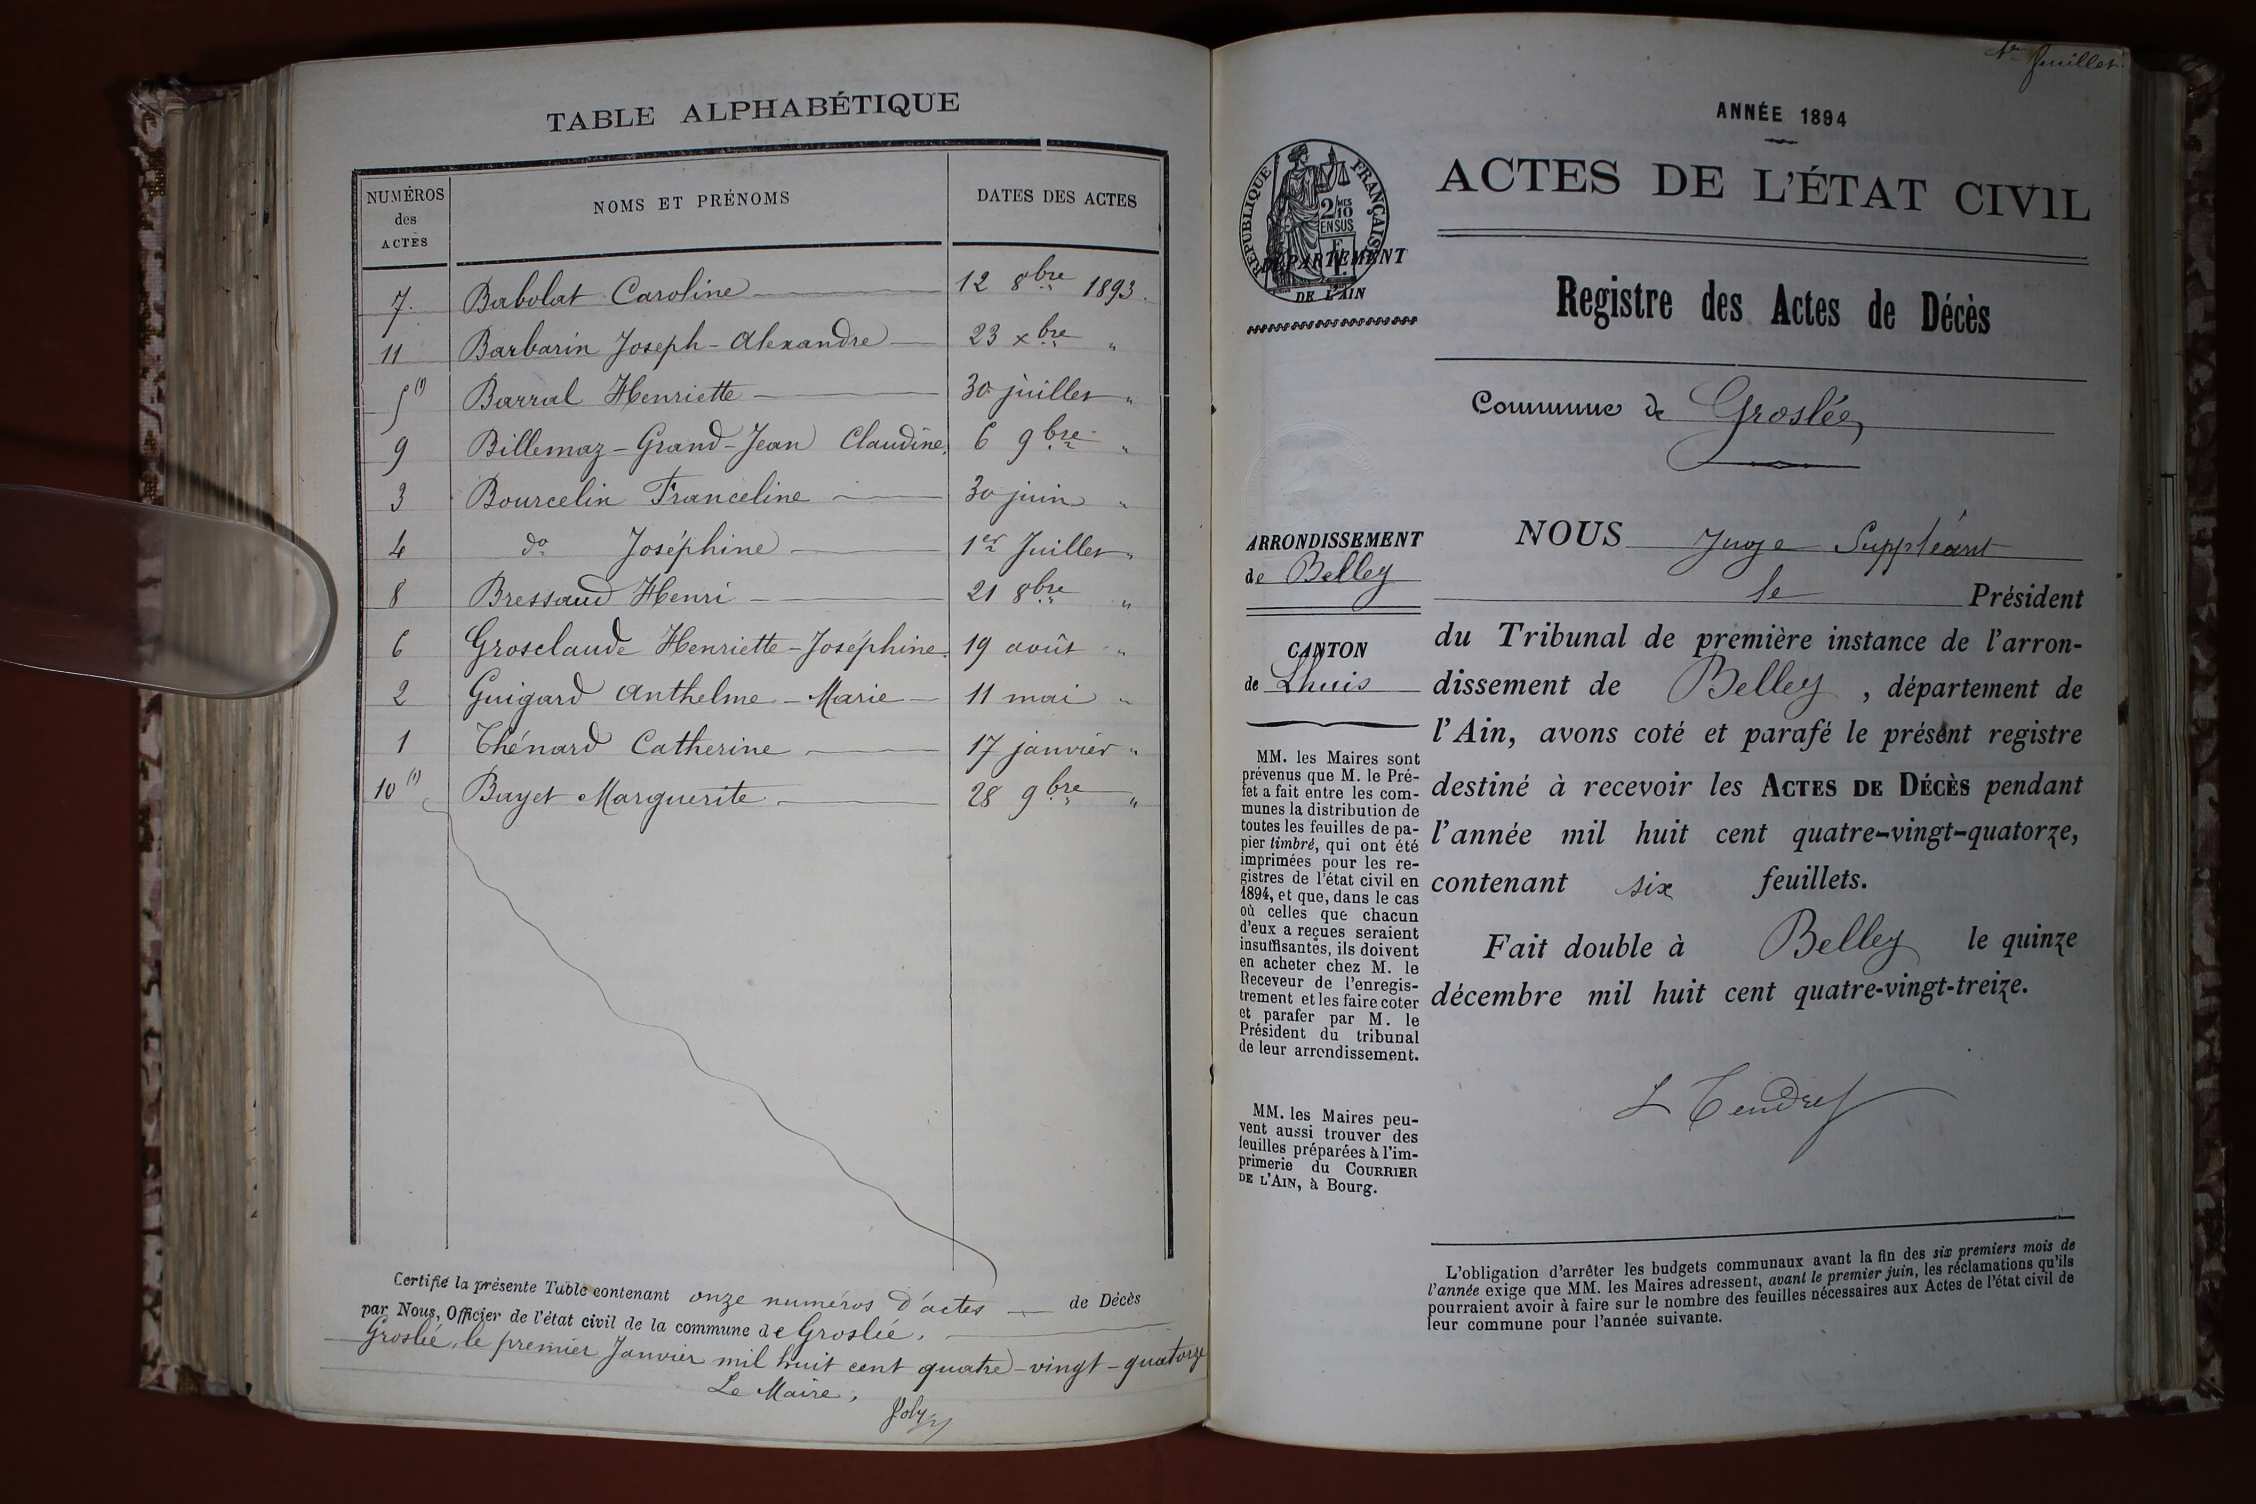 TABLE ALPHABÉTIQUE
NUMÉROS des ACTES NOMS ET PRÉNOMS DATES DES ACTES
7. Babolat Caroline 12 8bre 1893.
11 Barbarin Joseph-Alexandre 23 xbre "
5(1) Barral Henriette 30 juillet "
9 Billemaz-Grand-Jean Claudine. 6 9bre "
3 Bourcelin Franceline 30 juin "
4 do Joséphine 1er Juillet "
8 Bressaud Henri 21 8bre "
6 Grosclaude Henriette-Joséphine. 19 août "
2 Guigard Anthelme-Marie 11 mai "
1 Thénard Catherine 17 janvier "
10(1) Bayet Marguerite 28 9bre "
Certifié la présente Table contenant onze numéros d'actes de Décès
par Nous, Officier de l'état civil de la commune de Groslée.
Groslée, le premier Janvier mil huit cent quatre-vingt-quatorze
Le Maire,
Joly
1er feuillet.
ANNÉE 1894
ACTES DE L'ÉTAT CIVIL
RÉPUBLIQUE FRANÇAISE
2/10 MES
EN SUS
DÉPARTEMENT
DE L'AIN
Registre des Actes de Décès
Commune de Groslée
ARRONDISSEMENT
de Belley
CANTON
de Lhuis
MM. les Maires sont
prévenus que M. le Pré-
fet a fait entre les com-
munes la distribution de
toutes les feuilles de pa-
pier timbré, qui ont été
imprimées pour les re-
gistres de l'état civil en
1894, et que, dans le cas
où celles que chacun
d'eux a reçues seraient
insuffisantes, ils doivent
en acheter chez M. le
Receveur de l'enregis-
trement et les faire coter
et parafer par M. le
Président du tribunal
de leur arrondissement.
MM. les Maires peu-
vent aussi trouver des
feuilles préparées à l'im-
primerie du COURRIER
DE L'AIN, à Bourg.
NOUS Juge Suppléant
le Président
du Tribunal de première instance de l'arron-
dissement de Belley, département de
l'Ain, avons coté et parafé le présent registre
destiné à recevoir les ACTES DE DÉCÈS pendant
l'année mil huit cent quatre-vingt-quatorze,
contenant six feuillets.
Fait double à Belley le quinze
décembre mil huit cent quatre-vingt-treize.
L'obligation d'arrêter les budgets communaux avant la fin des six premiers mois de
l'année exige que MM. les Maires adressent, avant le premier juin, les réclamations qu'ils
pourraient avoir à faire sur le nombre des feuilles nécessaires aux Actes de l'état civil de
leur commune pour l'année suivante.